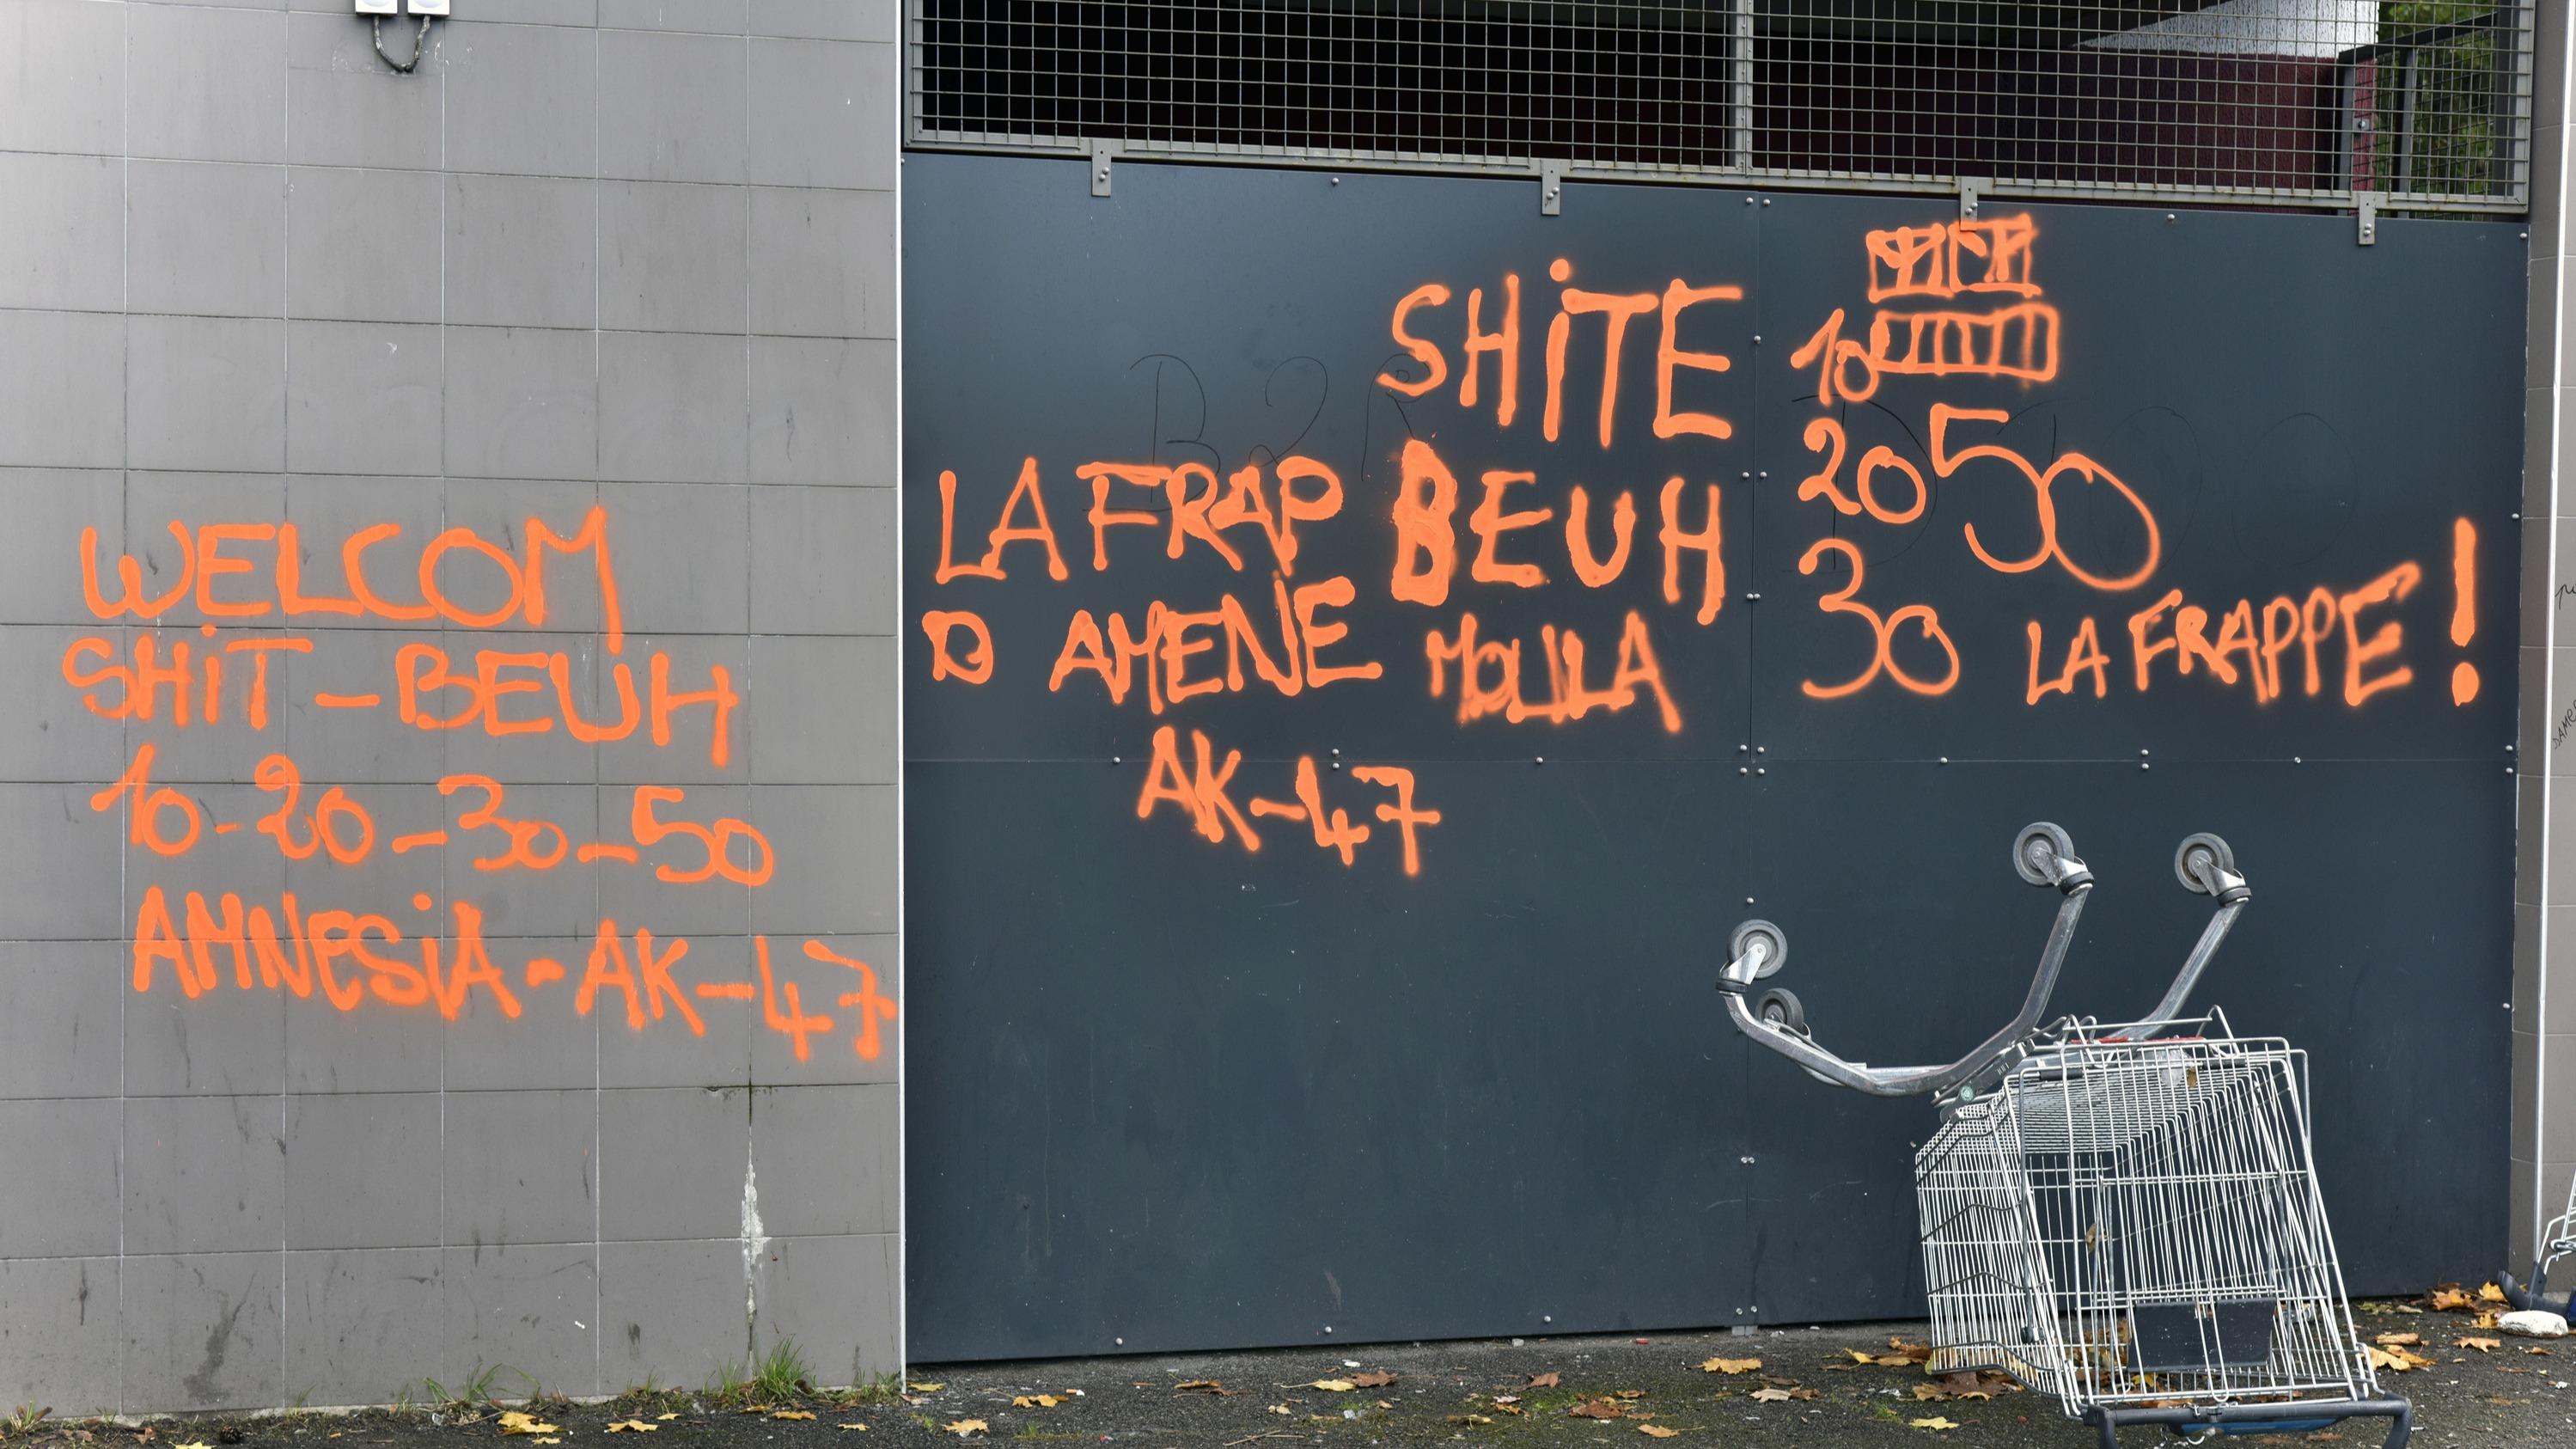 WELCOM
SHIT - BEUH
10 - 20 - 30 - 50
AMNESIA - AK-47
SHITE
LA FRAP BEUH
D AMENE MOULA
AK-47
10
20 50
30 LA FRAPPE !